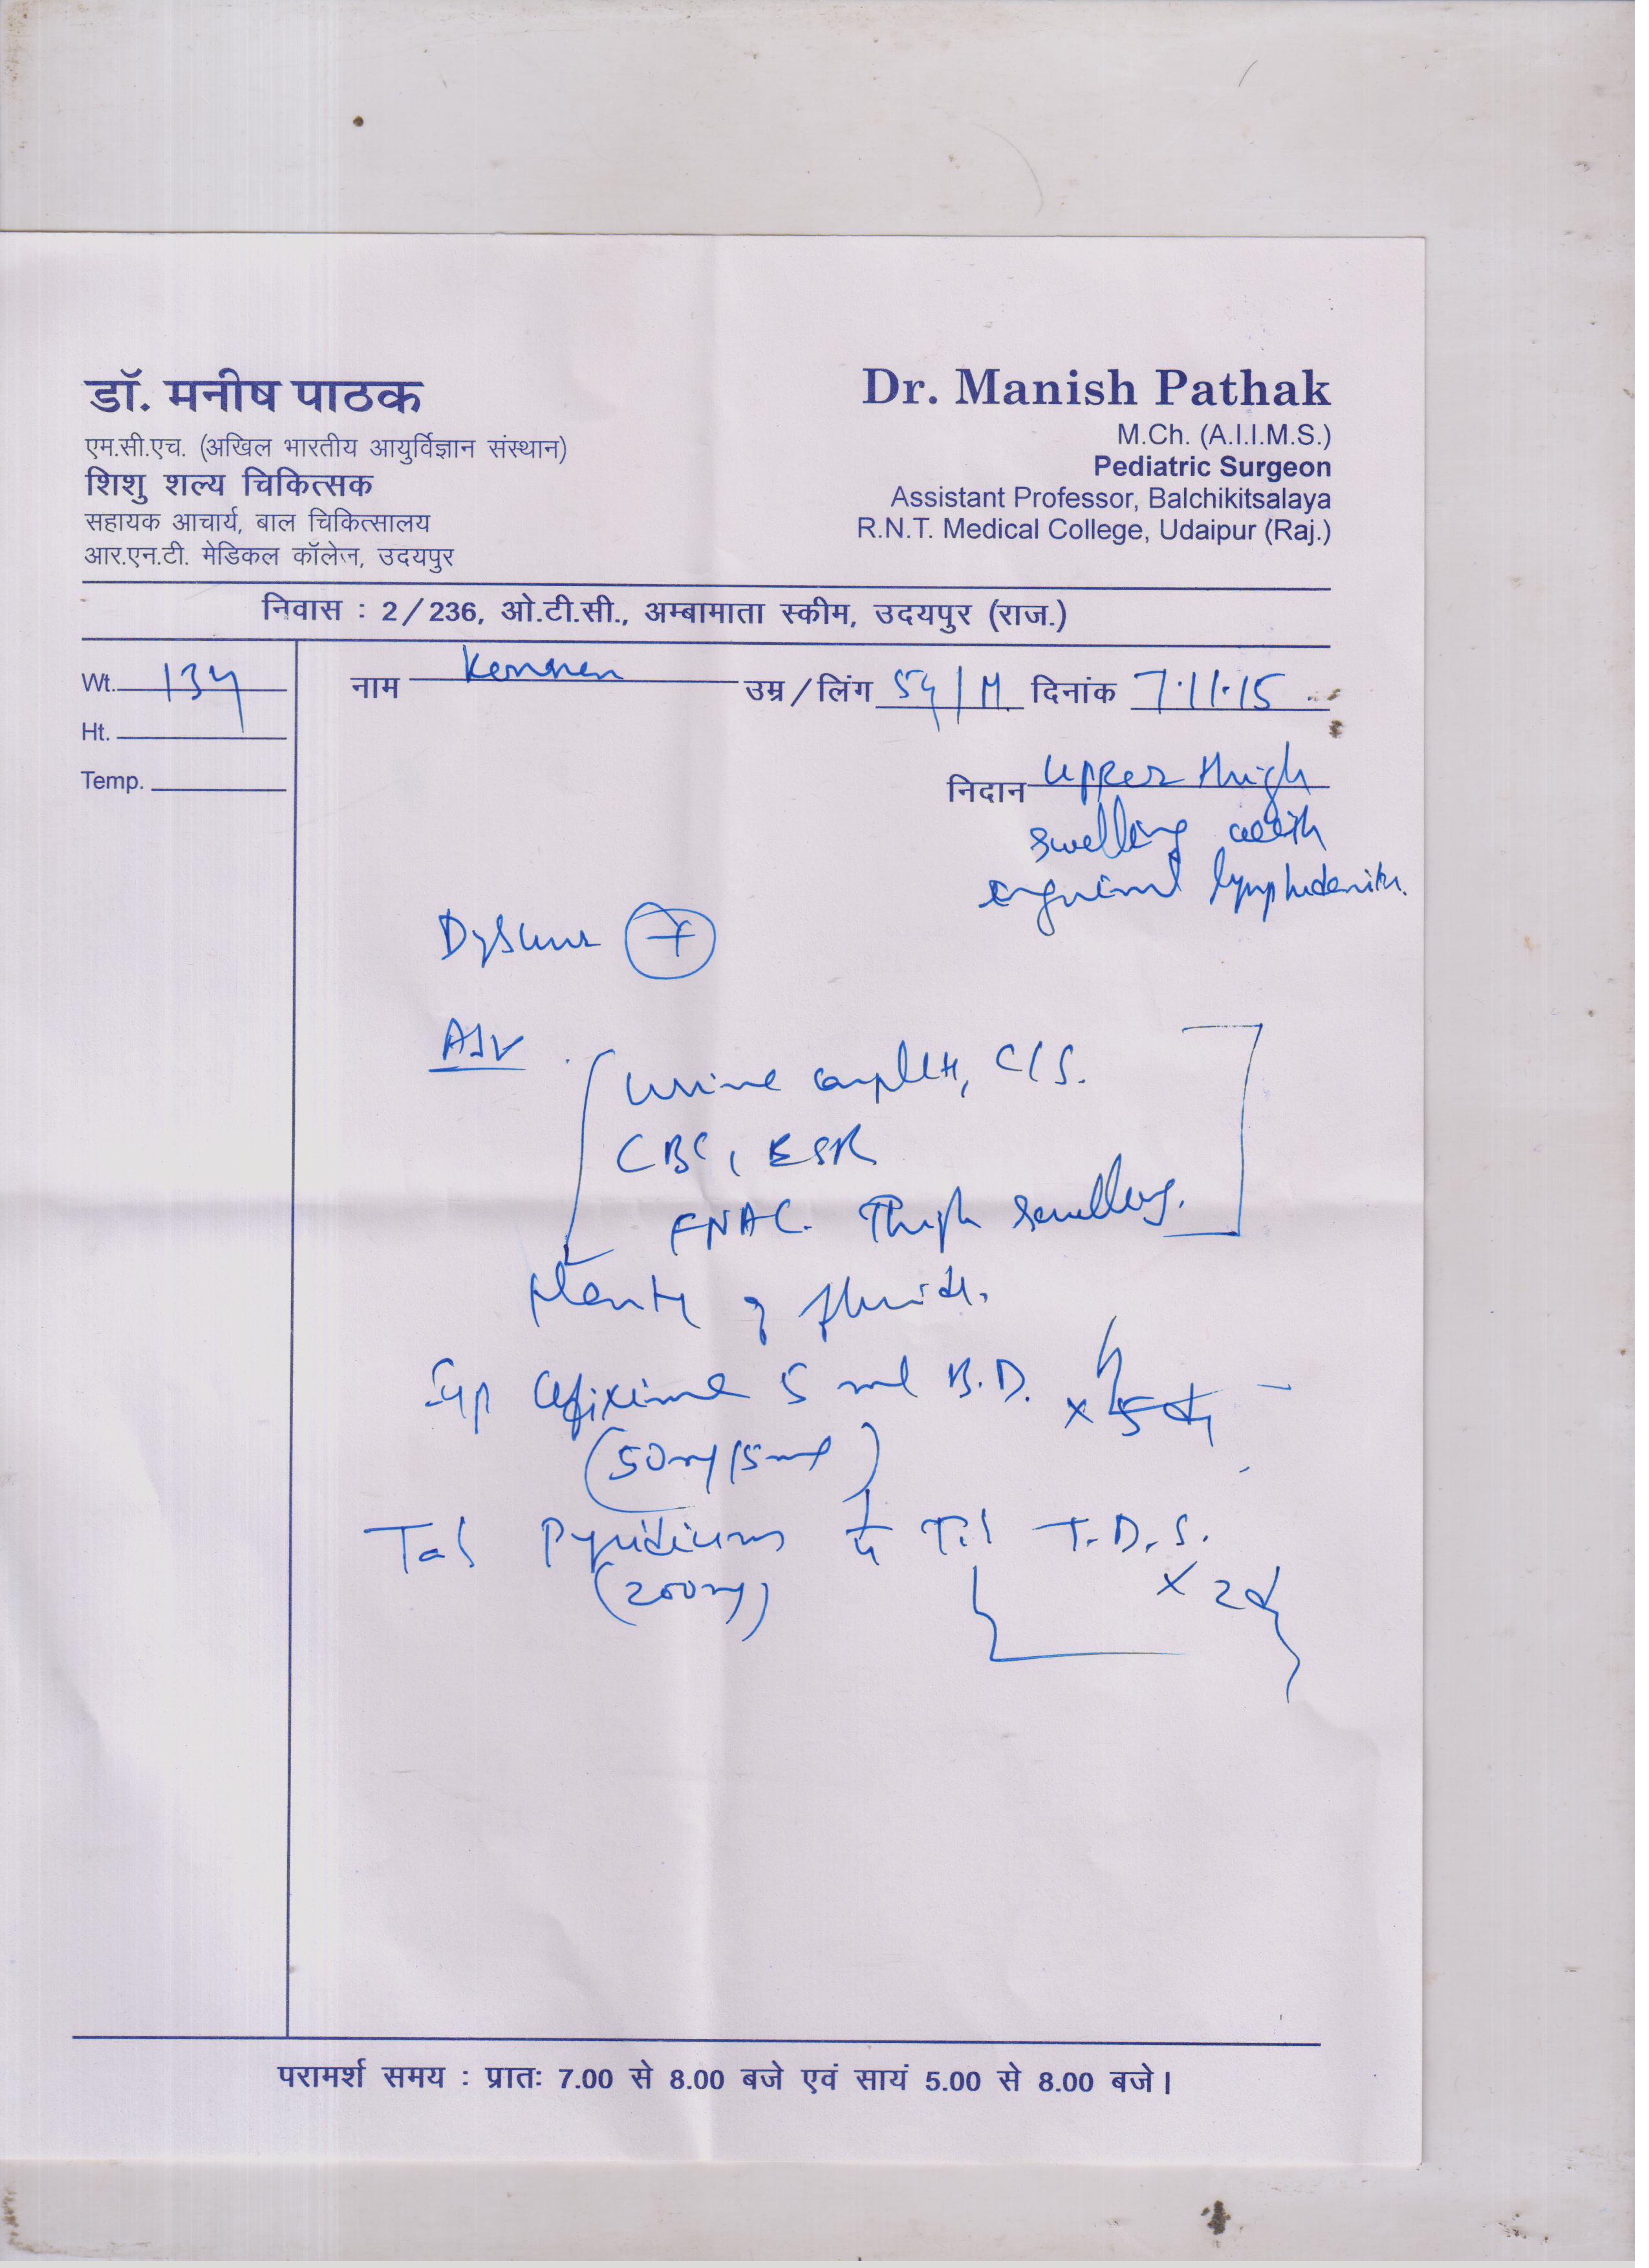 डॉ. मनीष पाठक
एम.सी.एच. (अखिल भारतीय आयुर्विज्ञान संस्थान)
शिशु शल्य चिकित्सक
सहायक आचार्य, बाल चिकित्सालय
आर.एन.टी. मेडिकल कॉलेज, उदयपुर
Dr. Manish Pathak
M.Ch. (A.I.I.M.S.)
Pediatric Surgeon
Assistant Professor, Balchikitsalaya
R.N.T. Medical College, Udaipur (Raj.)
निवास : 2/236, ओ.टी.सी., अम्बामाता स्कीम, उदयपुर (राज.)
Wt.
Ht.
Temp.
नाम उम्र/लिंग 5y/M दिनांक 7.11.15
निदान Upper thigh
swelling with
inguinal
+
Adv
Urine complete, C/S.
CBC, ESR
FNAC. Thigh swelling.
Plenty of fluids.
Syp Cefixime 5 ml B.D. x
(50mg/5ml)
Tab Pyridium T.D.S.
(200mg) x 2d
परामर्श समय : प्रातः 7.00 से 8.00 बजे एवं सायं 5.00 से 8.00 बजे।